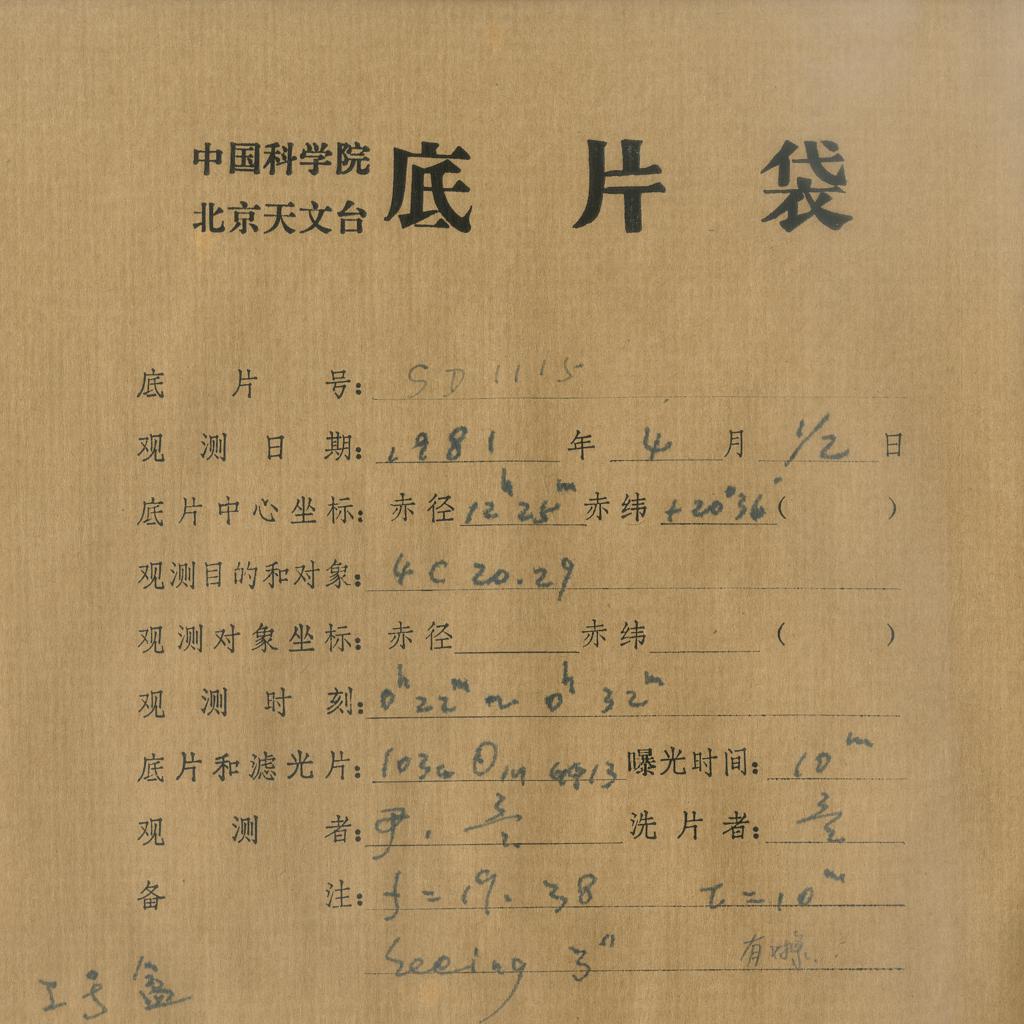 中国科学院
北京天文台
底片袋
底片号: SD 1115
观测日期: 1981 年 4 月 1/2 日
底片中心坐标: 赤径 12h 25m 赤纬 +20°36′ ( )
观测目的和对象: 4C 20.29
观测对象坐标: 赤径 赤纬 ( )
观测时刻: 0h 22m ~ 0h 32m
底片和滤光片: 103a O 曝光时间: 10m
观测者: 尹. 洗片者:
备注: f = 19.38 t = 10m
Seeing 3″ 有
工号盒